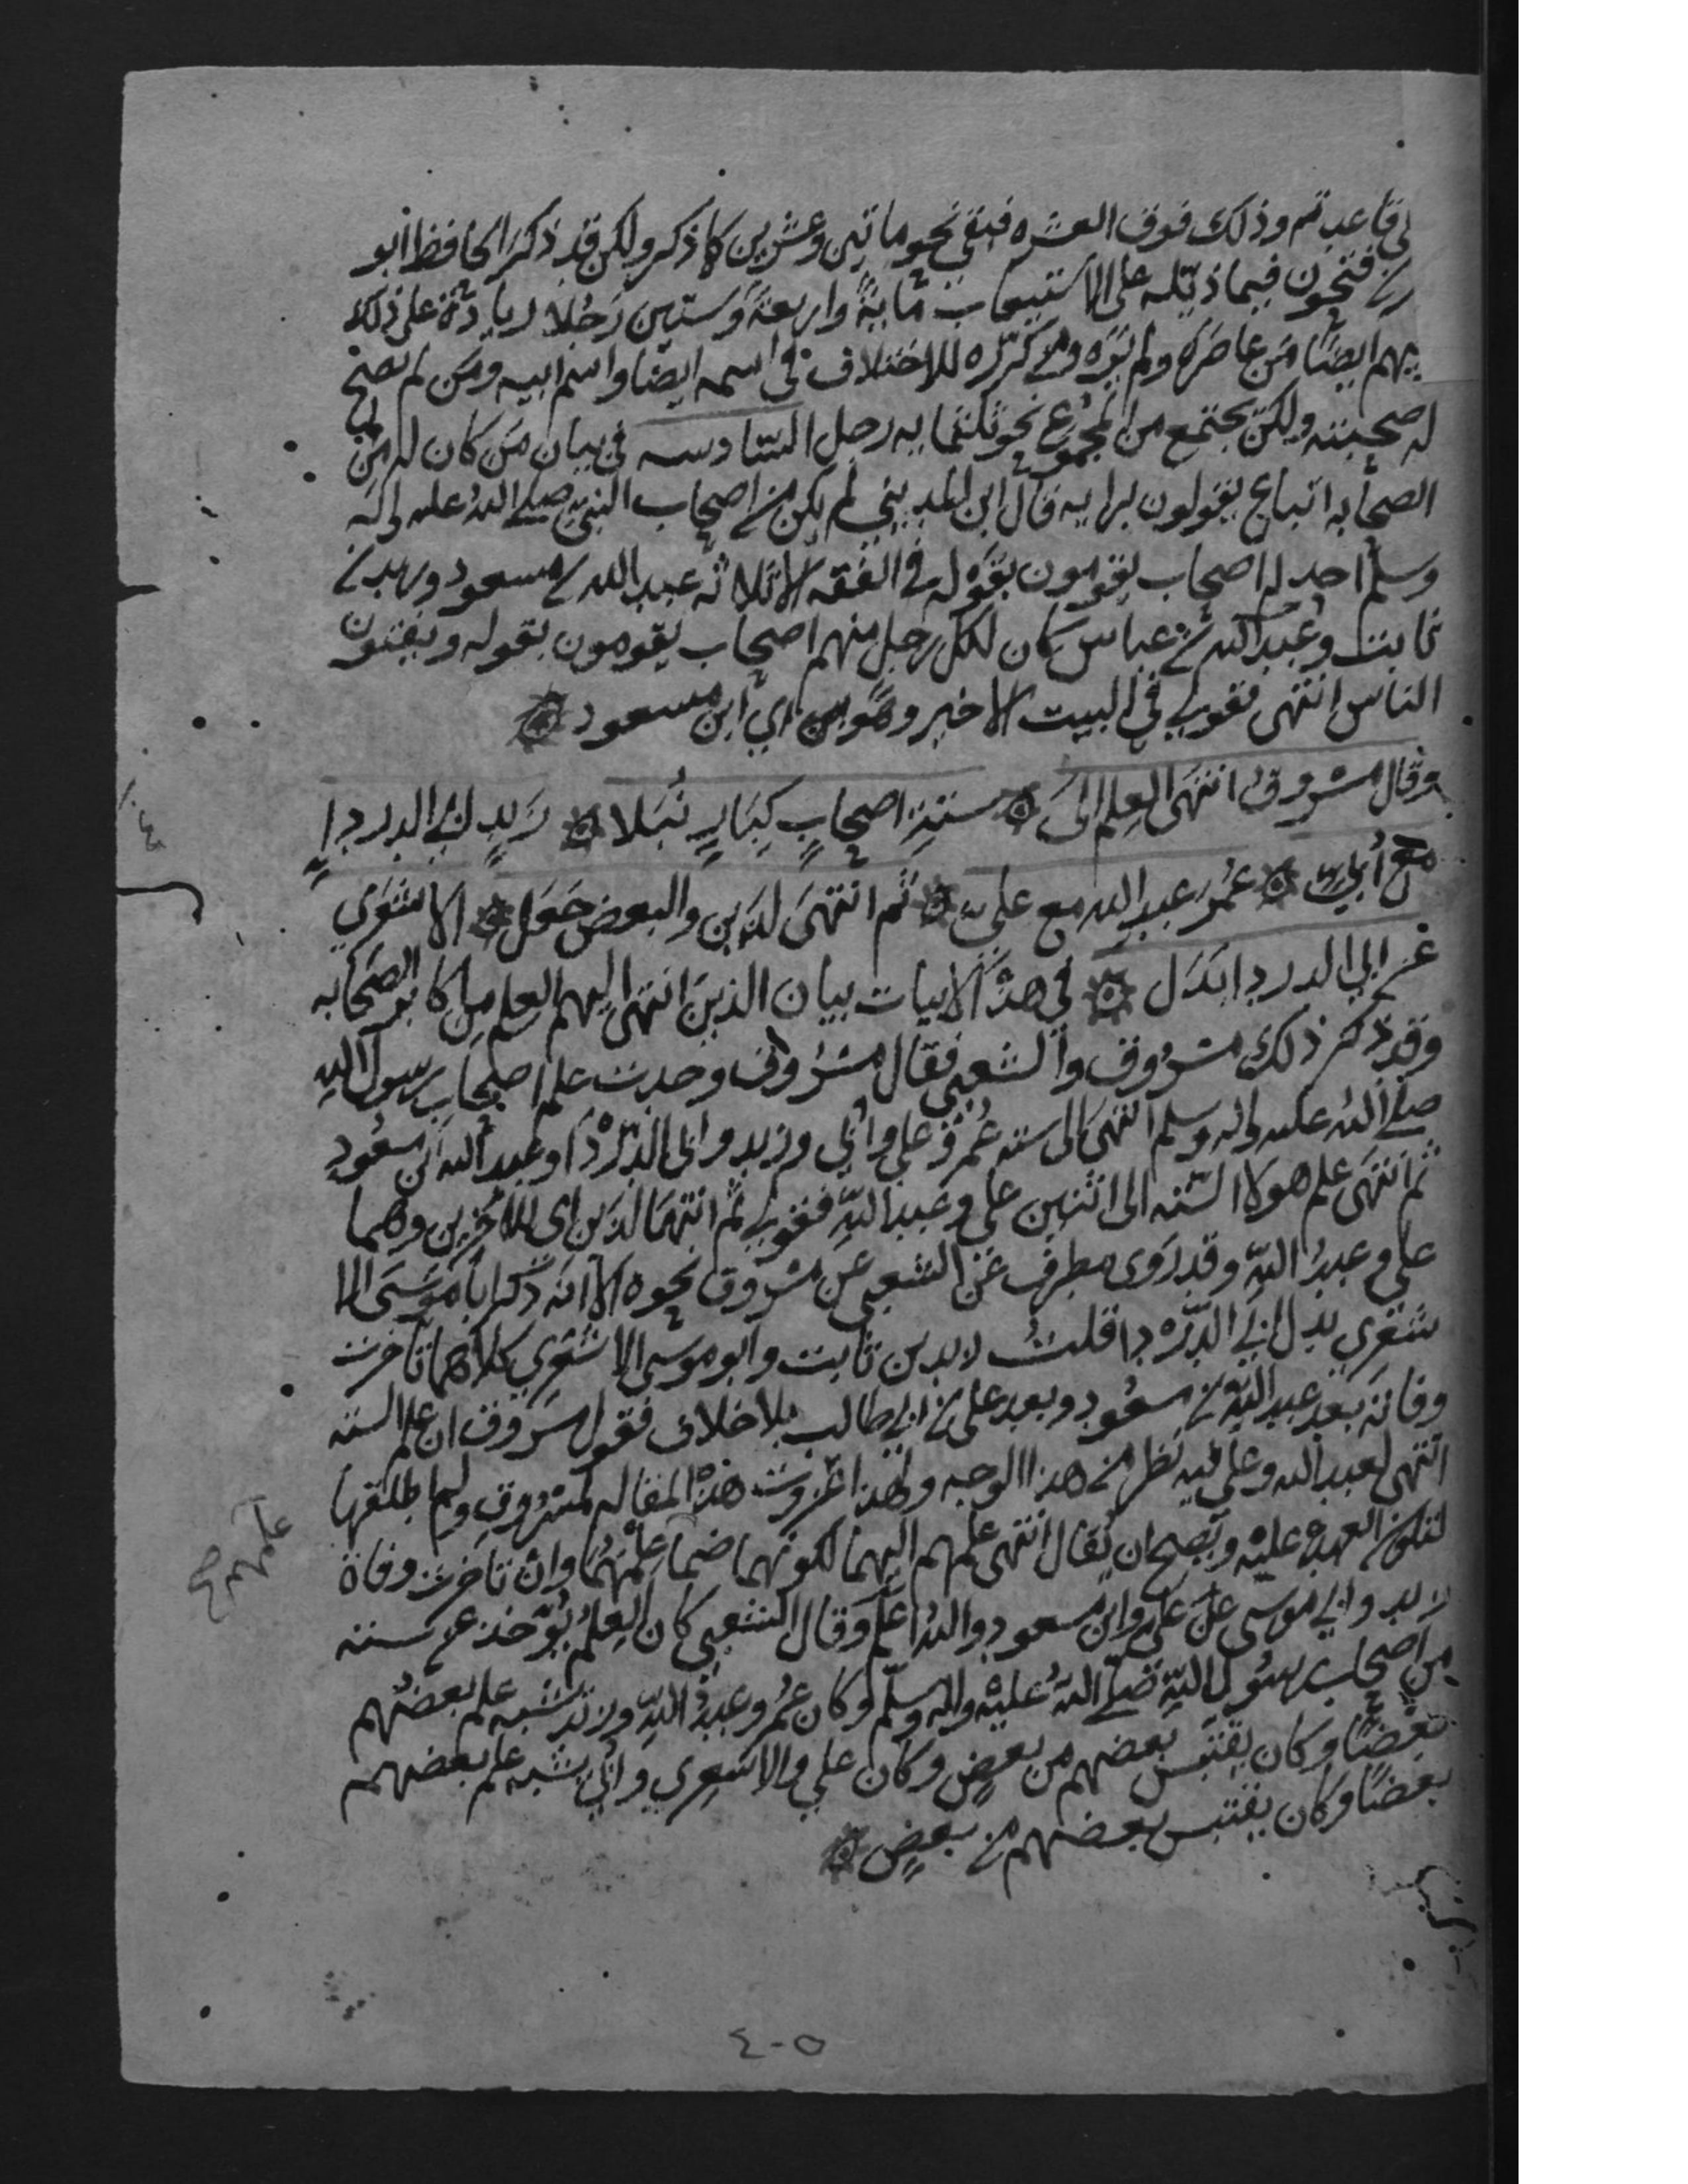 في قاعدتهم وذلك فوق العشره فبقى نحو ماتين وعشرين كما ذكر ولكن قد ذكر الحافظ ابو
بكر بن فتحون فيما ذيله على الاستيعاب مايةً واربعةً وستين رجُلا زيادة على ذلك
فيهم ايضًا من عاصره ولم يره ومن كرره للاختلاف في اسمه ايضا واسم ابيه ومن لم تصح
له صحبته ولكن يجتمع من المجموع نحو ثلثمايه رجل السادسه في بيان من كان له من
الصحابه اتباع يقولون برايه قال ابن المديني لم يكن من اصحاب النبي صلى الله عليه واله
وسلم احد له اصحاب يقومون بقوله في الفقه الا ثلاثه عبد الله بن مسعود وزيد بن
ثابت وعبد الله بن عباس كان لكل رجل منهم اصحاب يقومون بقوله ويفتون
الناس انتهى فقولي في البيت الاخير وهو اي ابن مسعود
وقال مسروق انتهى العلم الى ستة اصحابٍ كبارٍ نُبَلا زيدٍ ابي الدرداءِ
مع أبيّ عُمر عبد الله مع علي ثم انتهى لذين والبعض جعل الاشعري
عن ابي الدردا بدل في هذه الابيات بيان الذين انتهى اليهم العلم من اكابر الصحابه
وقد ذكر ذلك مسروق والشعبي فقال مسروق وجدت علم اصحاب رسول الله
صلى الله عليه واله وسلم انتهى الى سته عُمر وعلي وابي وزيد وابي الدردا وعبد الله بن مسعود
ثم انتهى علم هولا الستة الى اثنين علي وعبد الله فقولي ثم انتهى لذين اي للاخرين وهما
علي وعبدُ الله وقد روى مطرف عن الشعبي عن مسروق نحوه الا انه ذكر ابا موسى الا
شعري بدل ابي الدردا قلتُ لا زيد بن ثابت وابو موسى الاشعري كلاهما تاخرت
وفاته بعد عبد الله بن مسعود وبعد علي بن ابي طالب بلا خلاف فقول مسروق ان علم السته
انتهى لعبد الله وعلي فيه نظر من هذا الوجه ولهذا عزوت هذه المقاله لمسروق ولم اطلقها
لتكون العهدة عليه ويصح ان يقال انتهى علمهم اليهما لكونهما ضما علمهم وان تاخرت وفاة
زيد وابي موسى عن علي وابن مسعود والله اعلم وقال الشعبي كان العلم يؤخذ عن سته
من اصحاب رسول الله صلى الله عليه واله وسلم وكان عمر وعبد الله وزيد يشبه علم بعضهم
بعضًا وكان يقتبس بعضهم من بعض وكان علي والاشعري وابي يشبه علم بعضهم
بعضًا وكان يقتبس بعضهم من بعضٍ
٤٠٥